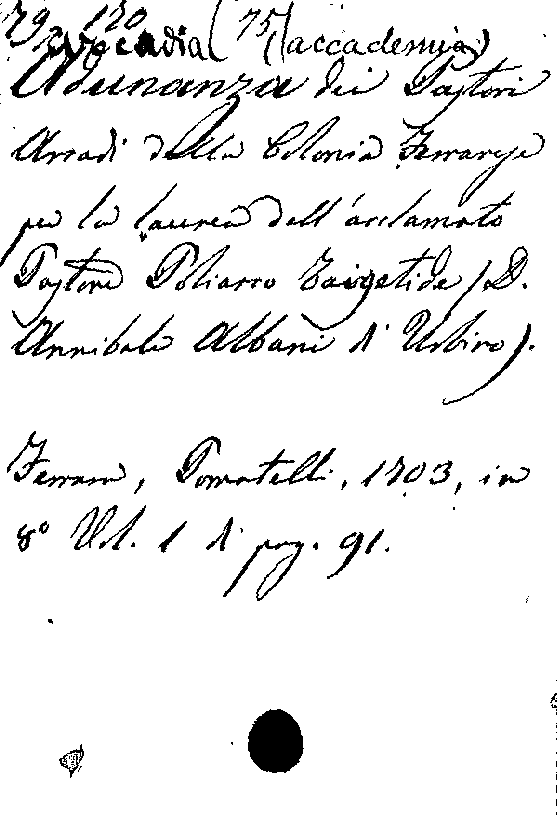 79, 120 (75)
Arcadia (accademia)
Adunanza dei Pastori
Arcadi della Colonia Ferrarese
per la laurea dell'acclamato
Pastore Poliarco Taigetide (D.
Annibale Albani di Urbino).
Ferrara, Pomatelli, 1703, in
8° Vol. 1 di pag. 91.